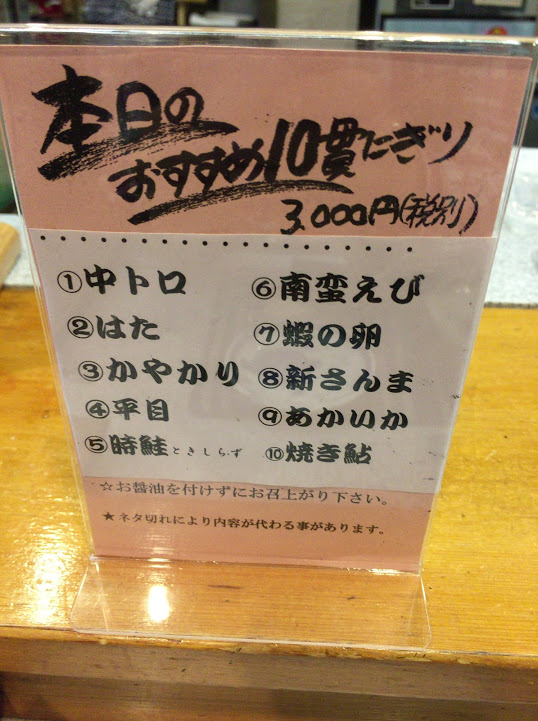 本日の
おすすめ10貫にぎり
3,000円(税別)
①中トロ
②はた
③かやかり
④平目
⑤時鮭ときしらず
⑥南蛮えび
⑦蝦の卵
⑧新さんま
⑨あかいか
⑩焼き鮎
☆お醤油を付けずにお召上がり下さい。
★ネタ切れにより内容が代わる事があります。